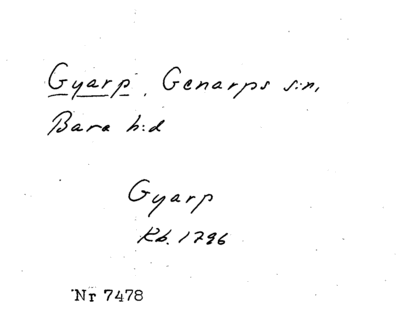 Gyarp, Genarps s:n,
Bara h:d
Gyarp
Kb. 1796
Nr 7478